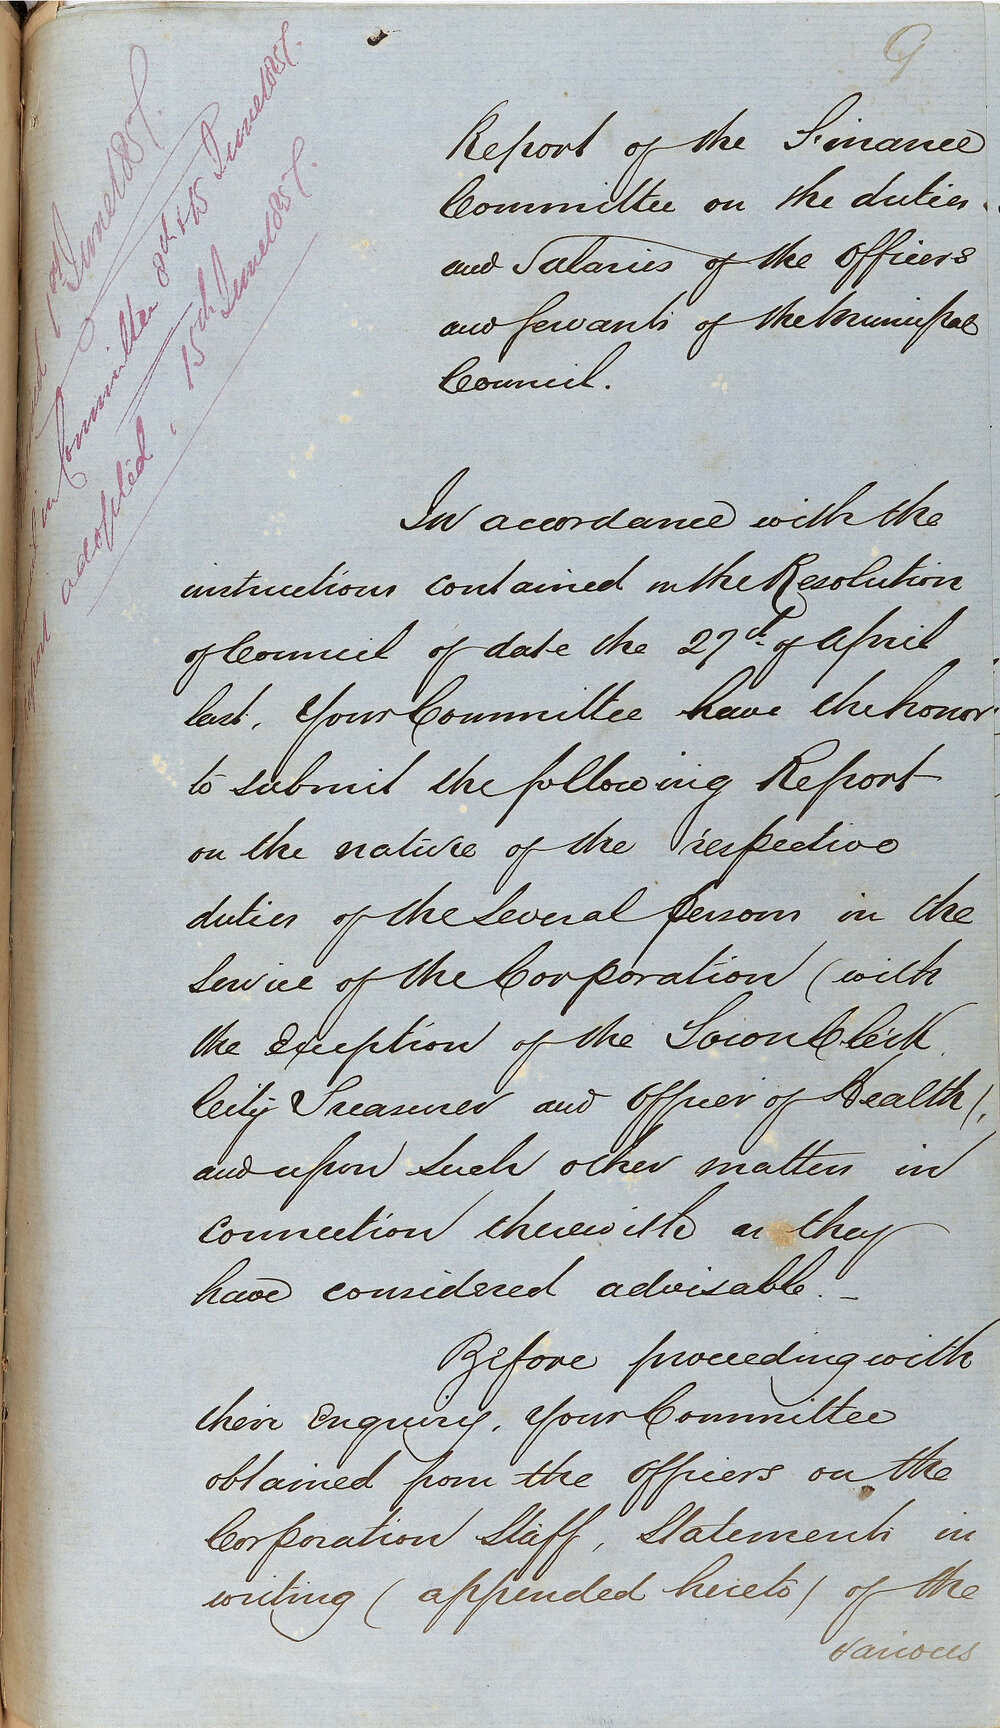 9
Report of the Finance
Committee on the duties
and Salaries of the Officers
and servants of the Municipal
Council.
1st June 1857.
in Committee 8th & 15 June 1857.
adopted 15th June 1857.
In accordance with the
instructions contained in the Resolution
of Council of date the 27th of April
last, Your Committee have the honor
to submit the following Report
on the nature of the respective
duties of the several persons in the
service of the Corporation (with
the exception of the Town Clerk
City Treasurer and Officer of Health),
and upon such other matters in
connection therewith as they
have considered advisable. _
Before proceeding with
their Enquiry, Your Committee
obtained from the Officers on the
Corporation Staff, Statements in
writing (appended hereto) of the
various